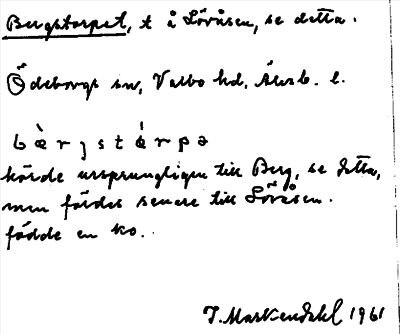 Bergstorpet, t å Lövåsen, se detta.
Ödeborgs sn, Valbo hd, Älvsb. l.
b æ̀ r j s t ǻ r p ə
hörde ursprungligen till Berg, se detta,
men fördes senare till Lövåsen.
födde en ko.
J. Markendahl 1961